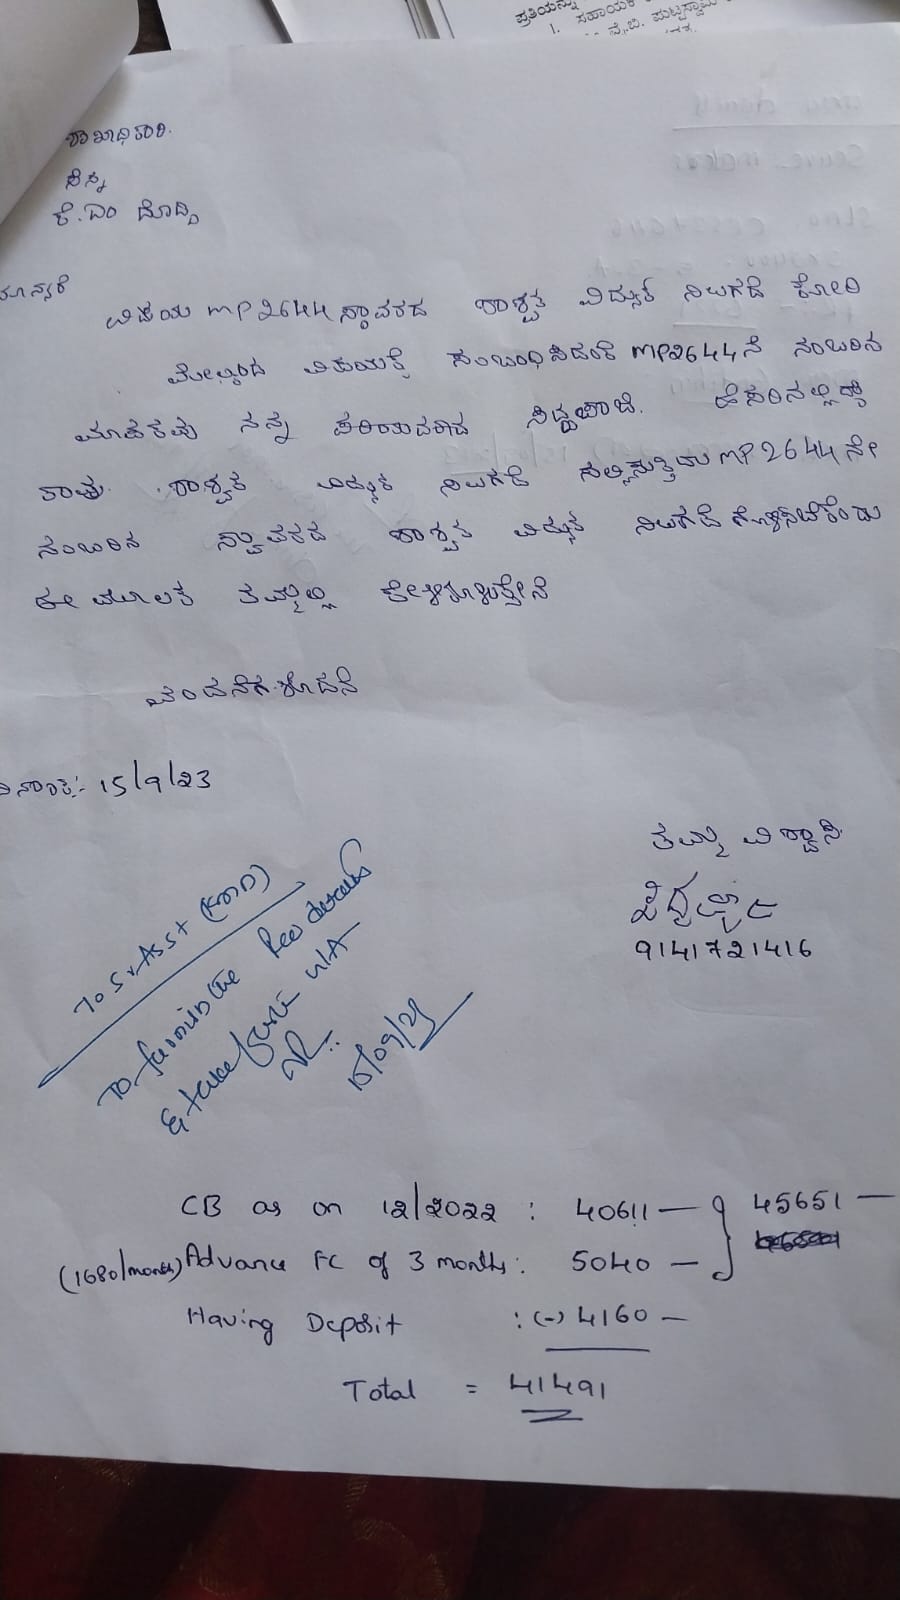 ಪ್ರತಿಯನ್ನು
1. ಸಹಾಯಕ
ವೈ.ಬಿ. ಪುಟ್ಟಸ್ವಾಮಿ
ಶಾಖಾಧಿಕಾರಿ.
ಸೆಸ್ಕ
ಕೆ.ಎಂ ದೊಡ್ಡಿ
ಮಾನ್ಯರೆ
ವಿಷಯ MP2644 ಸ್ಥಾವರದ ಶಾಶ್ವತ ವಿದ್ಯುತ್ ನಿಲುಗಡೆ ಕೋರಿ
ಮೇಲ್ಕಂಡ ವಿಷಯಕ್ಕೆ ಸಂಬಂಧಿಸಿದಂತೆ MP2644ನೆ ನಂಬರಿನ
ನನ್ನ ಸಿದ್ದಪಾಜಿ. ಹೆಸರಿನಲ್ಲಿದ್ದು
ಶಾಶ್ವತ ವಿದ್ಯುತ ನಿಲುಗಡೆ ಸಲ್ಲಿಸುತ್ತಿದ್ದು MP2644ನೇ
ನಂಬರಿನ ಸ್ಥಾವರದ ಶಾಶ್ವತ ವಿದ್ಯುತ ನಿಲುಗಡೆ ಗೊಳಿಸಬೇಕೆಂದು
ಈ ಮೂಲಕ ತಮ್ಮಲ್ಲಿ ಕೇಳಿಕೊಳ್ಳುತ್ತೇನೆ
ವಂದನೆಗಳೊದನೆ
ದಿನಾಂಕ:- 15/9/23
ತಮ್ಮ ವಿಶ್ವಾಸಿ
9141721416
To Sr Asst (KMD)
To furnish the Rev details
& take further N/A
15/09/23
CB as on 12/2022 : 40611 — 45651 —
(1680/month) Advance FC of 3 months: 5040 —
Having Deposit : (-) 4160 —
Total = 41491